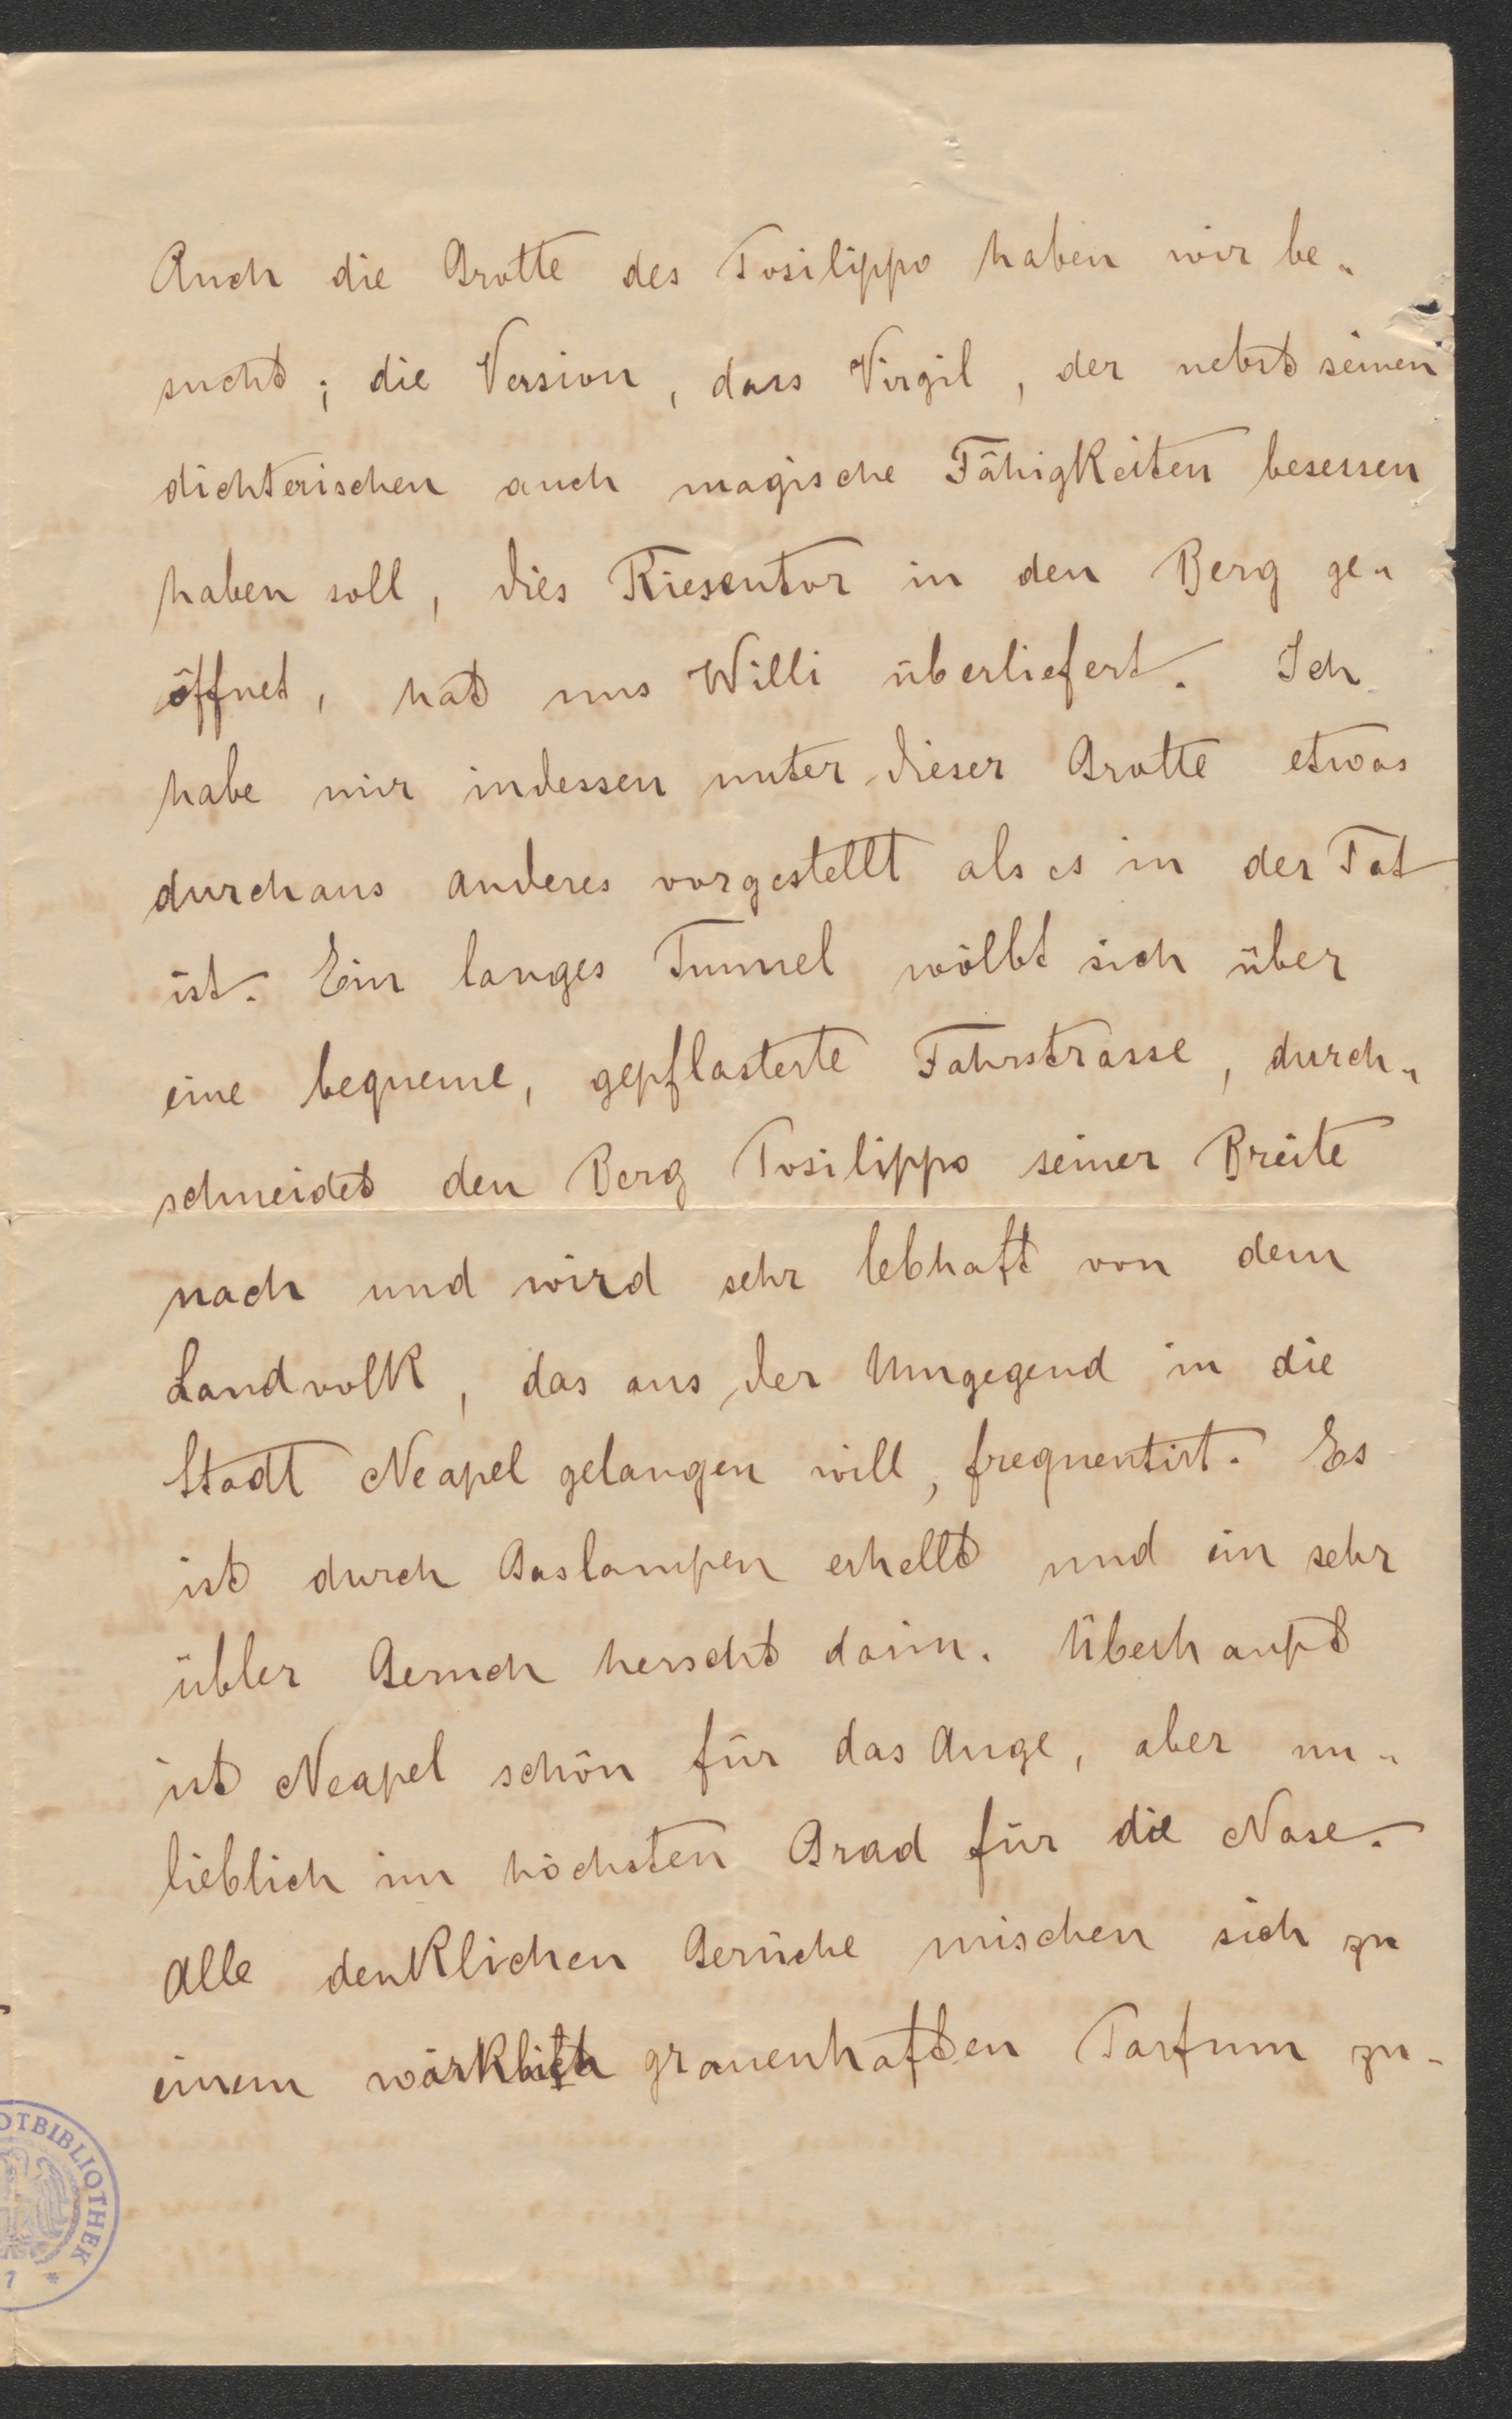 Auch die Grotte des Posilippo haben wir be-
sucht; die Version, dass Virgil, der nebst seinen
dichterischen auch magische Fähigkeiten besessen
haben soll, dies Riesentor in den Berg ge-
öffnet, hat uns Willi überliefert. Ich
habe mir indessen unter dieser Grotte etwas
durchaus anderes vorgestellt als es in der Tat
ist. Ein langes Tunnel wölbt sich über
eine bequeme, gepflasterte Fahrstrasse, durch-
schneidet den Berg Posilippo seiner Breite
nach und wird sehr lebhaft von dem
Landvolk, das aus der Umgegend in die
Stadt Neapel gelangen will, frequentirt. Es
ist durch Gaslampen erhellt und ein sehr
übler Geruch herscht darin. Überhaupt
ist Neapel schön für das Auge, aber un-
lieblich im höchsten Grad für die Nase.
Alle denklichen Gerüche mischen sich zu
einem wirklich grauenhaften Parfum zu-
OTBIBLIOTHEK
7 *